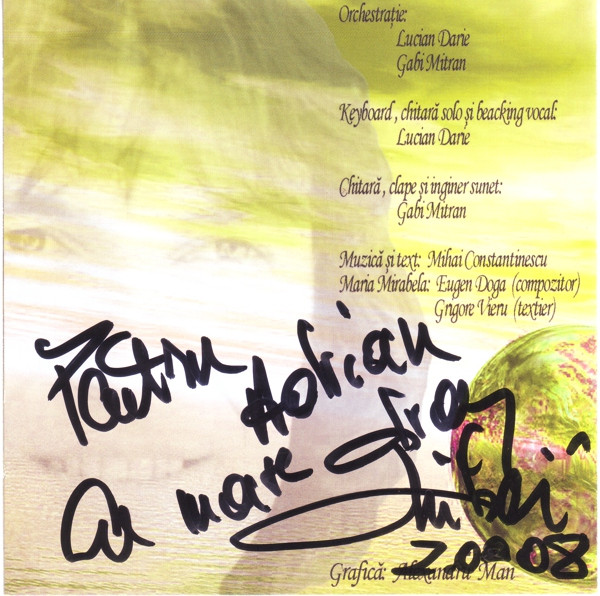 Orchestrație:
Lucian Darie
Gabi Mitran
Keyboard, chitară solo și beacking vocal:
Lucian Darie
Chitară, clape și inginer sunet:
Gabi Mitran
Muzică și text: Mihai Constantinescu
Maria Mirabela: Eugen Doga (compozitor)
Grigore Vieru (textier)
Pentru Adrian
Cu mare drag
Mihai
2008
Grafică: Alexandru Man